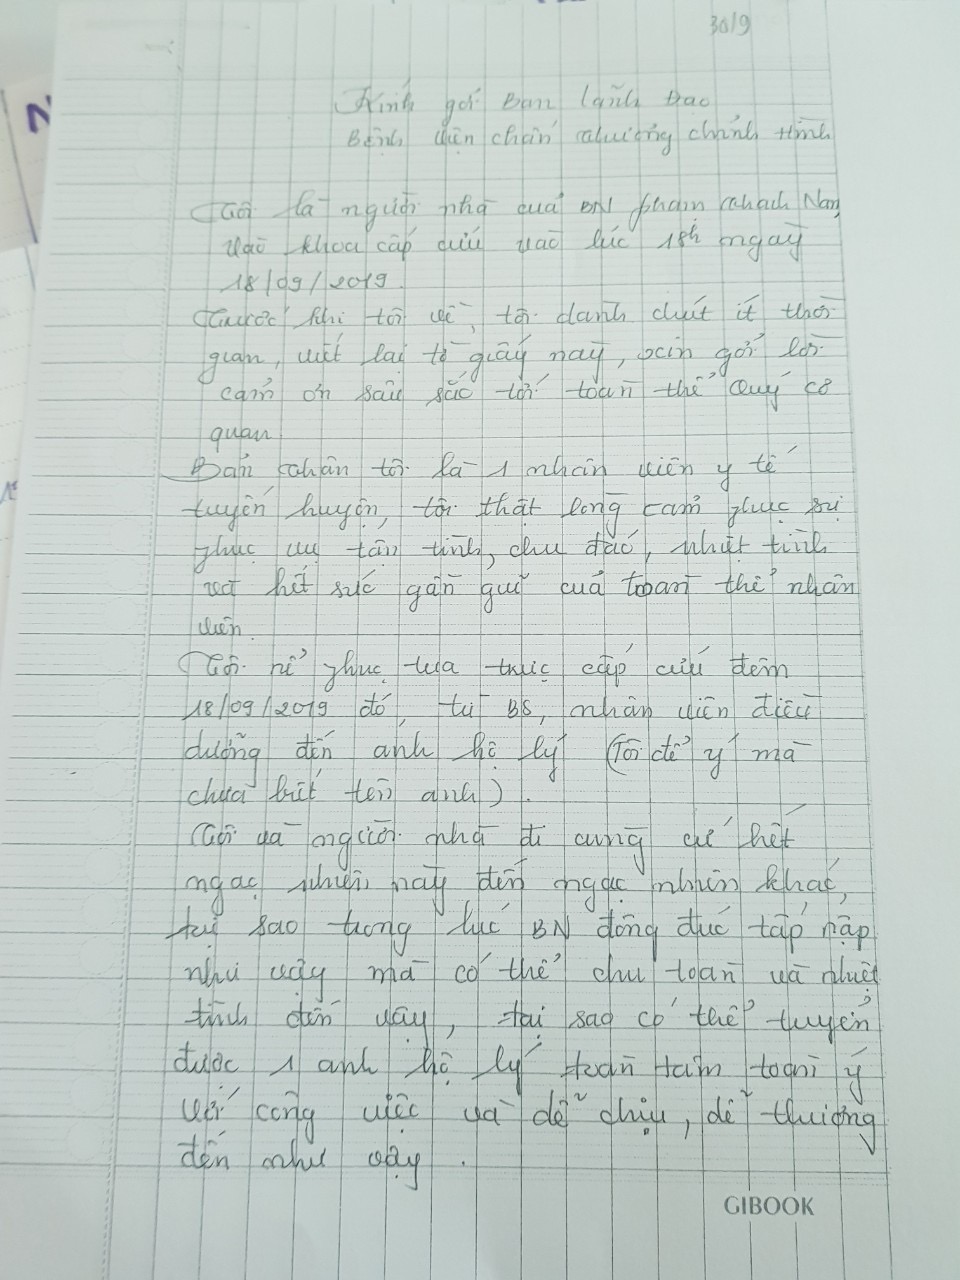 30/9
Kính gởi Ban lãnh Đạo
Bệnh viện chấn thương chỉnh hình
Tôi là người nhà của BN Phạm Thành Nam,
vào khoa cấp cứu vào lúc 18h ngày
18/09/2019.
Trước khi tôi về, tôi dành chút ít thời
gian, viết lại tờ giấy này, xin gởi lời
cảm ơn sâu sắc tới toàn thể Quý cơ
quan
Bản thân tôi là 1 nhân viên y tế
tuyến huyện, tôi thật lòng cảm phục sự
phục vụ tận tình, chu đáo, nhiệt tình
và hết sức gần gũi của toàn thể nhân
viên.
Tôi nể phục tua trực cấp cứu đêm
18/09/2019 đó, từ BS, nhân viên điều
dưỡng đến anh hộ lý (Tôi để ý mà
chưa biết tên anh).
Tôi và người nhà đi cùng cứ hết
ngạc nhiên này đến ngạc nhiên khác,
tại sao trong lúc BN đông đúc tấp nập
như vậy mà có thể chu toàn và nhiệt
tình đến vậy, tại sao có thể tuyển
được 1 anh hộ lý toàn tâm toàn ý
với công việc và dễ chịu, dễ thương
đến như vậy.
GIBOOK